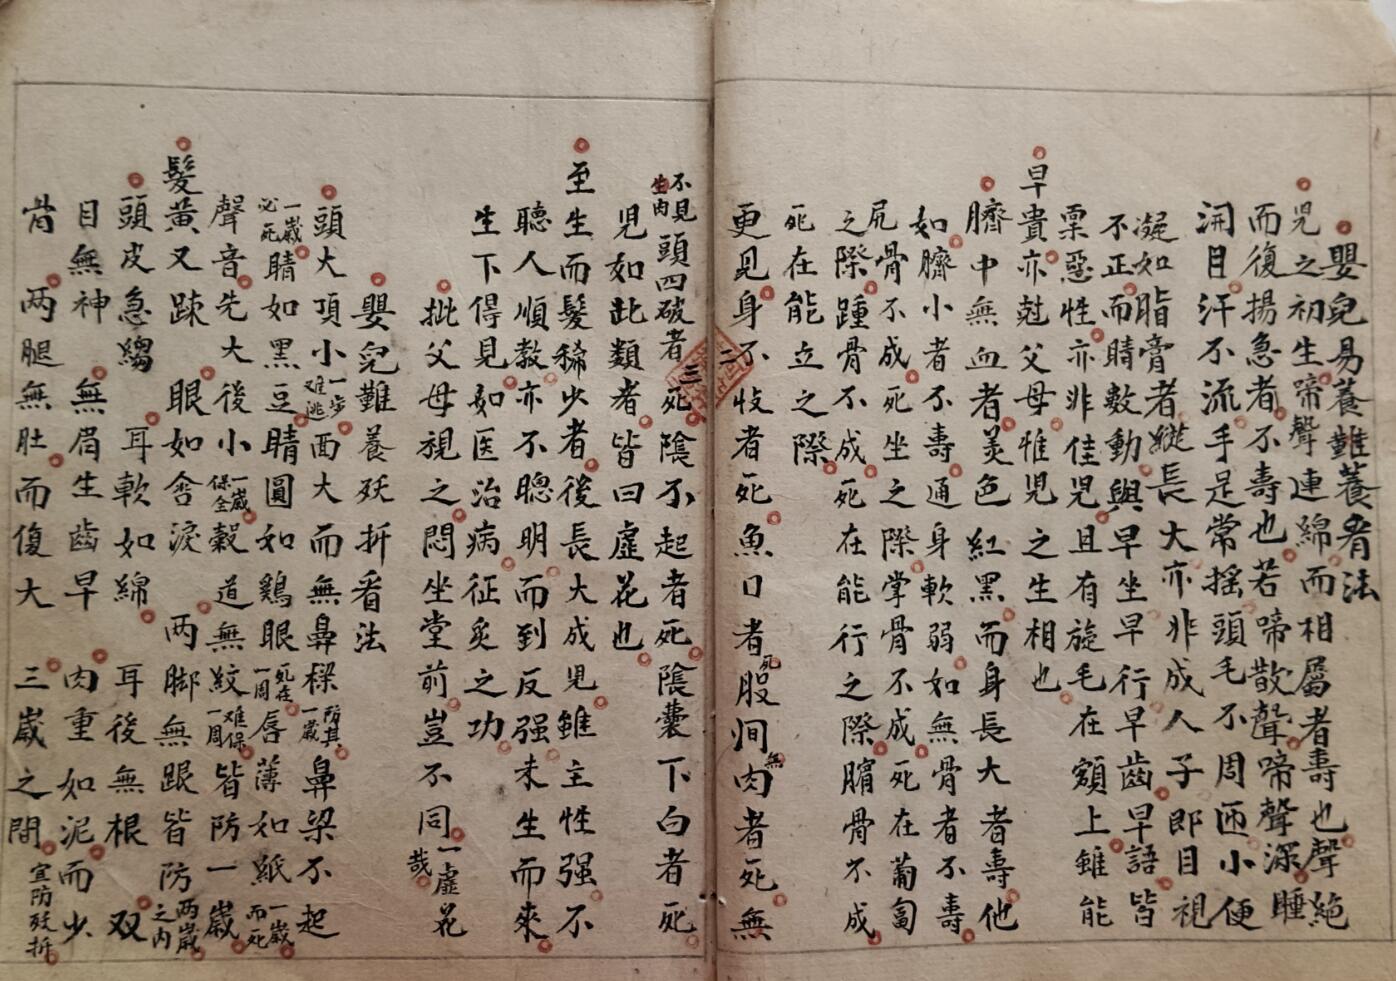 嬰兒易養難養看法
児之初生啼聲連綿而相屬者壽也聲絶
而復揚急者不壽也若啼散聲啼聲深睡
開目汗不流手足常摇頭毛不周匝小便
凝如脂膏者縱長大亦非成人子即目視
不正而睛數動與早坐早行早齒早語皆
栗惡性亦非佳児且有旋毛在額上雖能
早貴亦尅父母惟児之生相也
臍中無血者美色紅黑而身長大者壽他
如臍小者不壽通身軟弱如無骨者不壽
尻骨不成死坐之際掌骨不成死在匍匐
之際踵骨不成死在能行之際臏骨不成
死在能立之際
更見身不收者死魚口者死股间無肉者死無
二
三
不見生肉頭四破者死陰不起者死陰囊下白者死
児如此類者皆曰虛花也
至生而髮稀少者後長大成児雖主性强不
聽人順教亦不聰明而到反强未生而來
生下得見如医治病征炙之功
批父母視之悶坐堂前豈不同一虛花哉
嬰兒難養殀折看法
頭大頂小一步难逃面大而無鼻樑防其一歲鼻梁不起
一歲必死睛如黑豆睛圓如鷄眼死在一周唇薄如紙一歲而死
聲音先大後小一歲保全穀道無紋难保一周皆防一歲
髮黄又踈 眼如含淚 两脚無跟皆防两歲之内
頭皮急縐 耳軟如綿 耳後無根 双
目無神 無眉生齒早 肉重如泥而少
肯 两腿無肚而復大 三歲之間宜防殀折